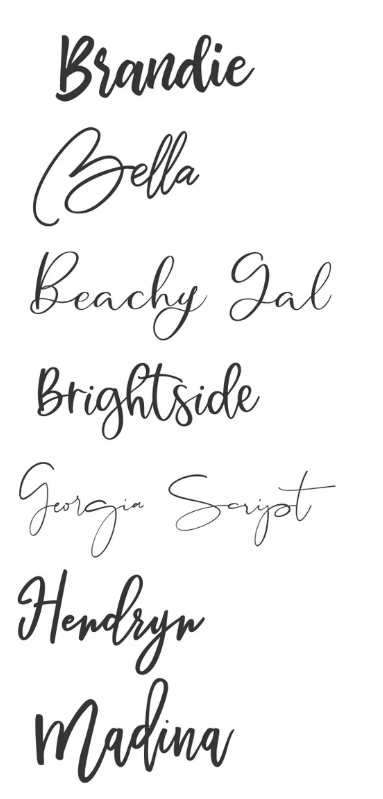 Brandie
Bella
Beachy Gal
Brightside
Georgia Script
Hendryn
Madina